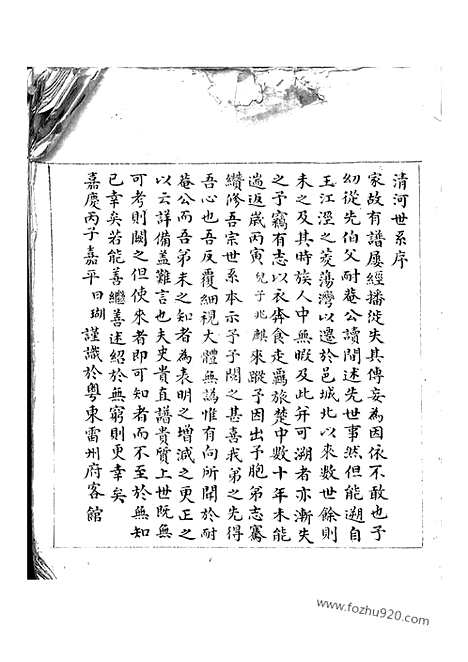 清河世系序
家故有譜屢經播徙失其傳妄為因依不敢也予
幼從先伯父耐菴公讀間述先世事然但能溯自
玉江涇之菱蕩灣以遷於邑城北以來數世餘則
未之及其時族人中無暇及此并可溯者亦漸失
之予竊有志以衣奔食走羈旅楚中數十年未能
遄返歲丙寅兒子兆麒來蹤予因出予胞弟志騫
纘修吾宗世系本示予予閱之甚喜我弟之先得
吾心也吾反覆細視大體無譌惟有向所聞於耐
菴公而吾弟未之知者為表明之增減之更正之
以云詳備盖難言也夫史貴直譜貴質上世旣無
可考則闕之但使來者即可知者而不至於無知
已幸矣若能善繼善述紹於無窮則更幸矣
嘉慶丙子嘉平日瑚謹識於粵東雷州府客館
www.fozhu920.com